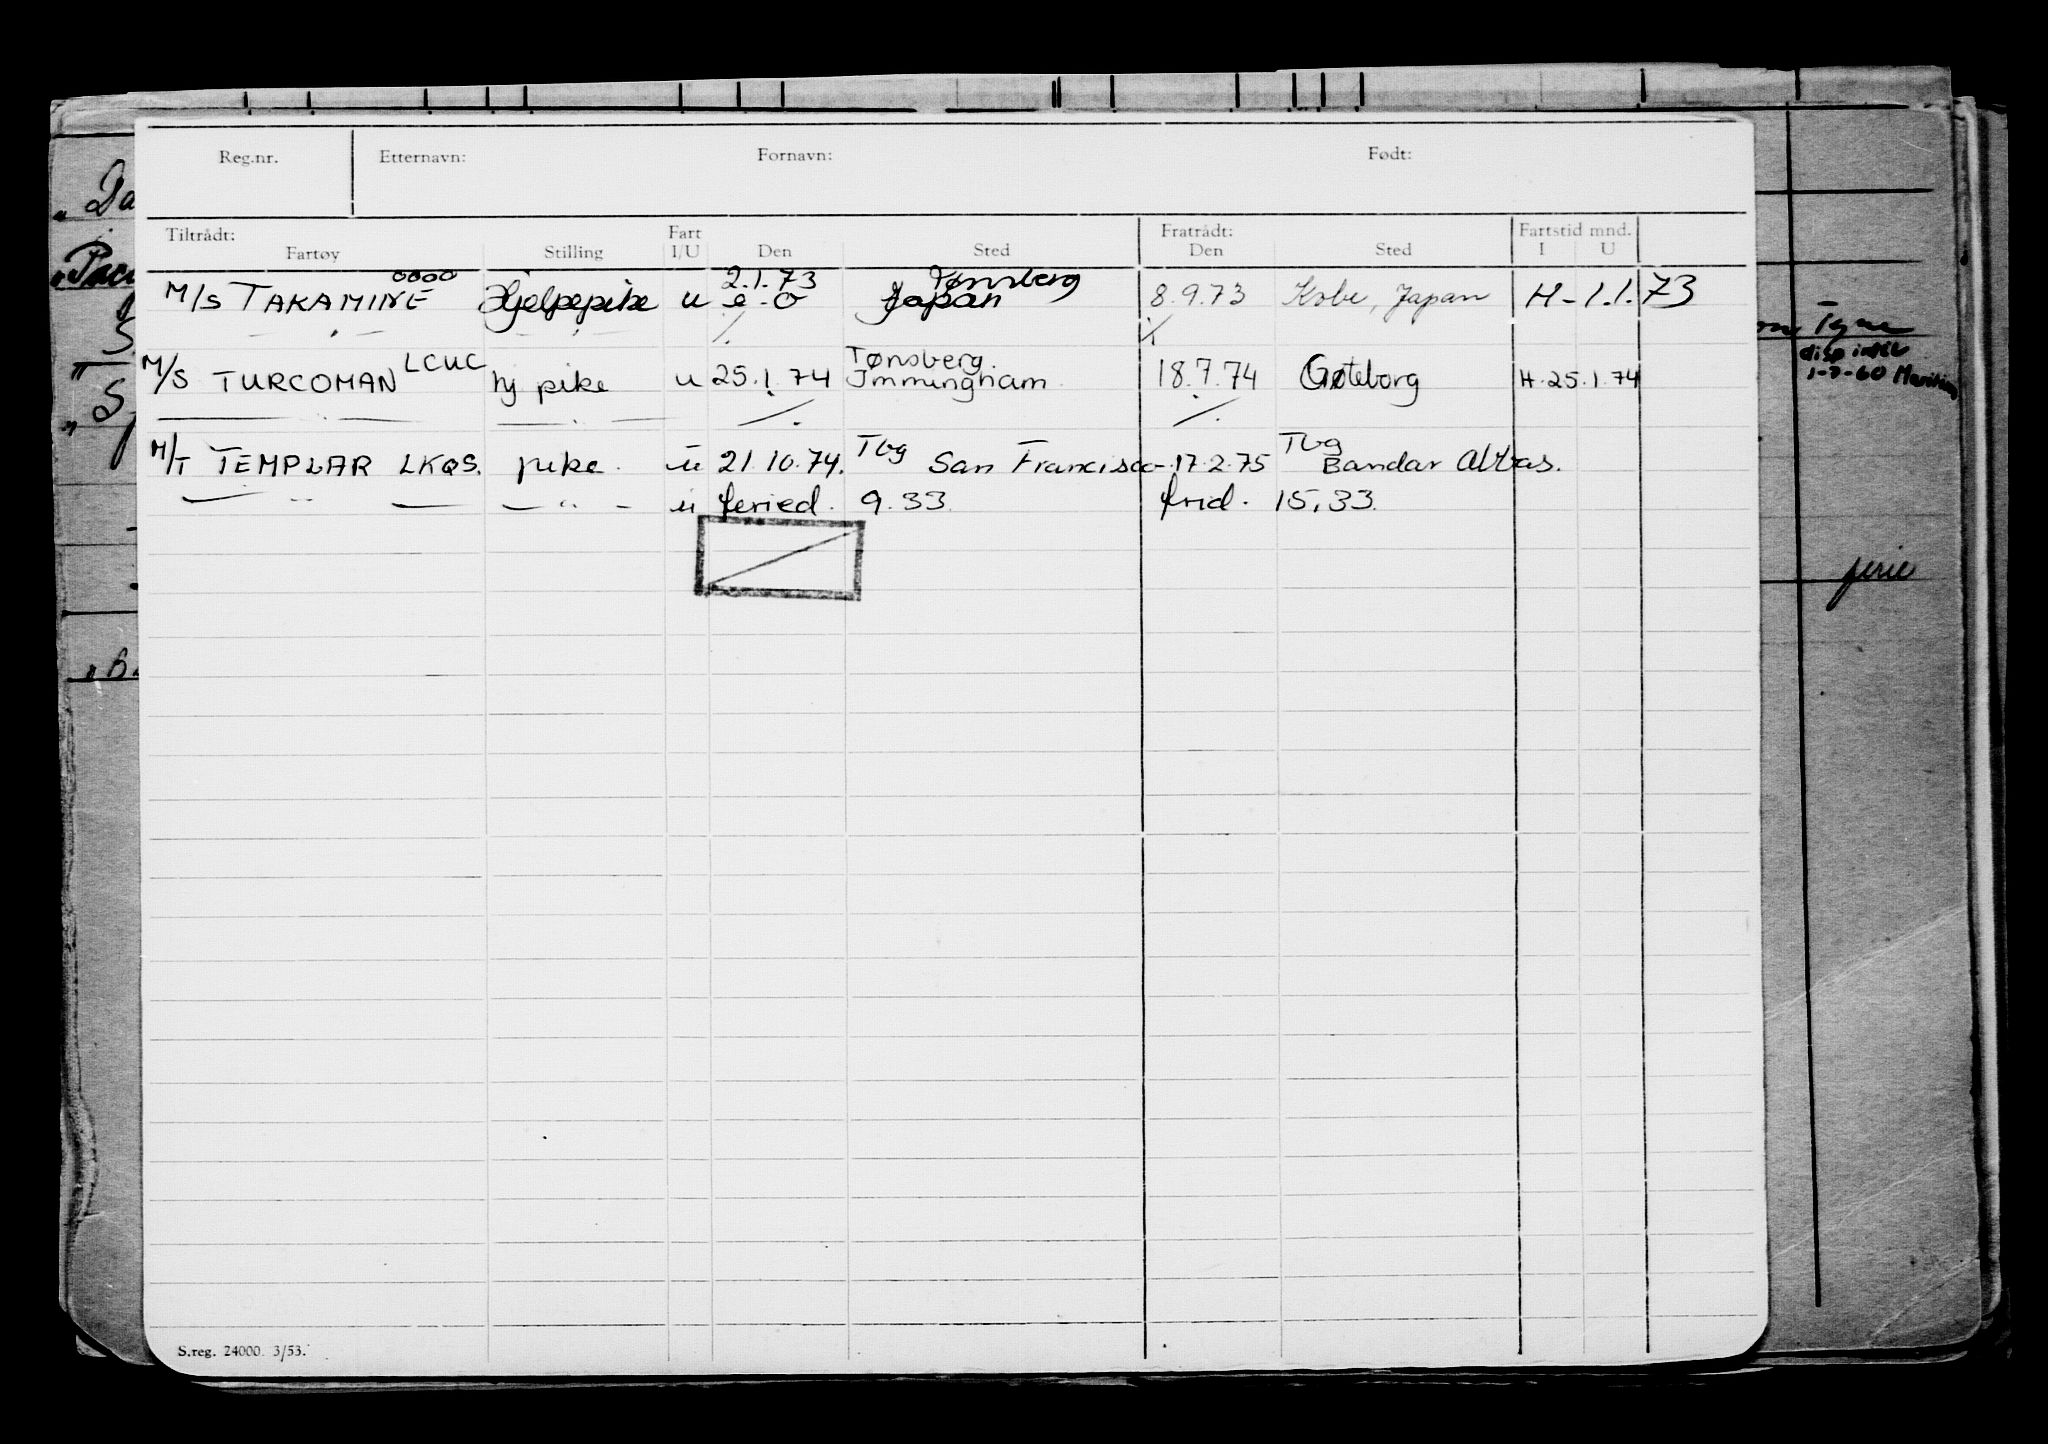 Reg.nr. Etternavn: Fornavn: Født:
Tiltrådt: Fart Fratrådt: Fartstid mnd.
Fartøy Stilling I/U Den Sted Den Sted I U
0000 2.1.73 Tønsberg
M/S TAKAMINE Hjelpepike u Japan 8.9.73 Kobe, Japan H-1.1.73
LCUC Tønsberg
M/S TURCOMAN hj pike u 25.1.74 Immingham 18.7.74 Gøteborg H.25.1.74
Tbg Tbg
M/T TEMPLAR LKQS. pike. u 21.10.74. San Francisco 17.2.75 Bandar Abbas.
— " — — " — u feried. 9.33 frid. 15,33.
S.reg. 24000. 3/53.
Da
Tyne
1-7-60
ferie